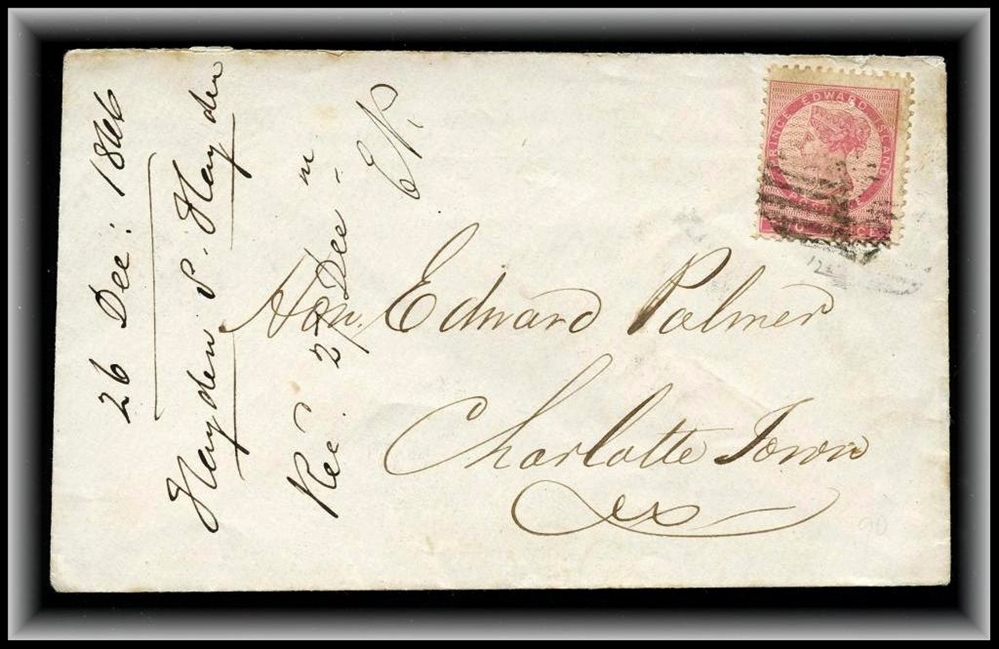 26 Dec: 1866
Hayden v. Hayden
Rec'd 27 Dec - "
E.P.
PRINCE EDWARD ISLAND
Hon. Edward Palmer
Charlotte Town
90